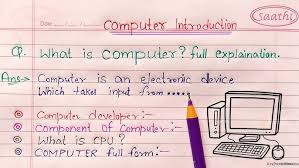 Saathi
Date
Computer Introduction
Q. What is computer? full explaination.
Ans→ Computer is an electronic device
Which takes input from.....
Computer developer:-
Component of Computer:-
What is CPU?
COMPUTER full form:-